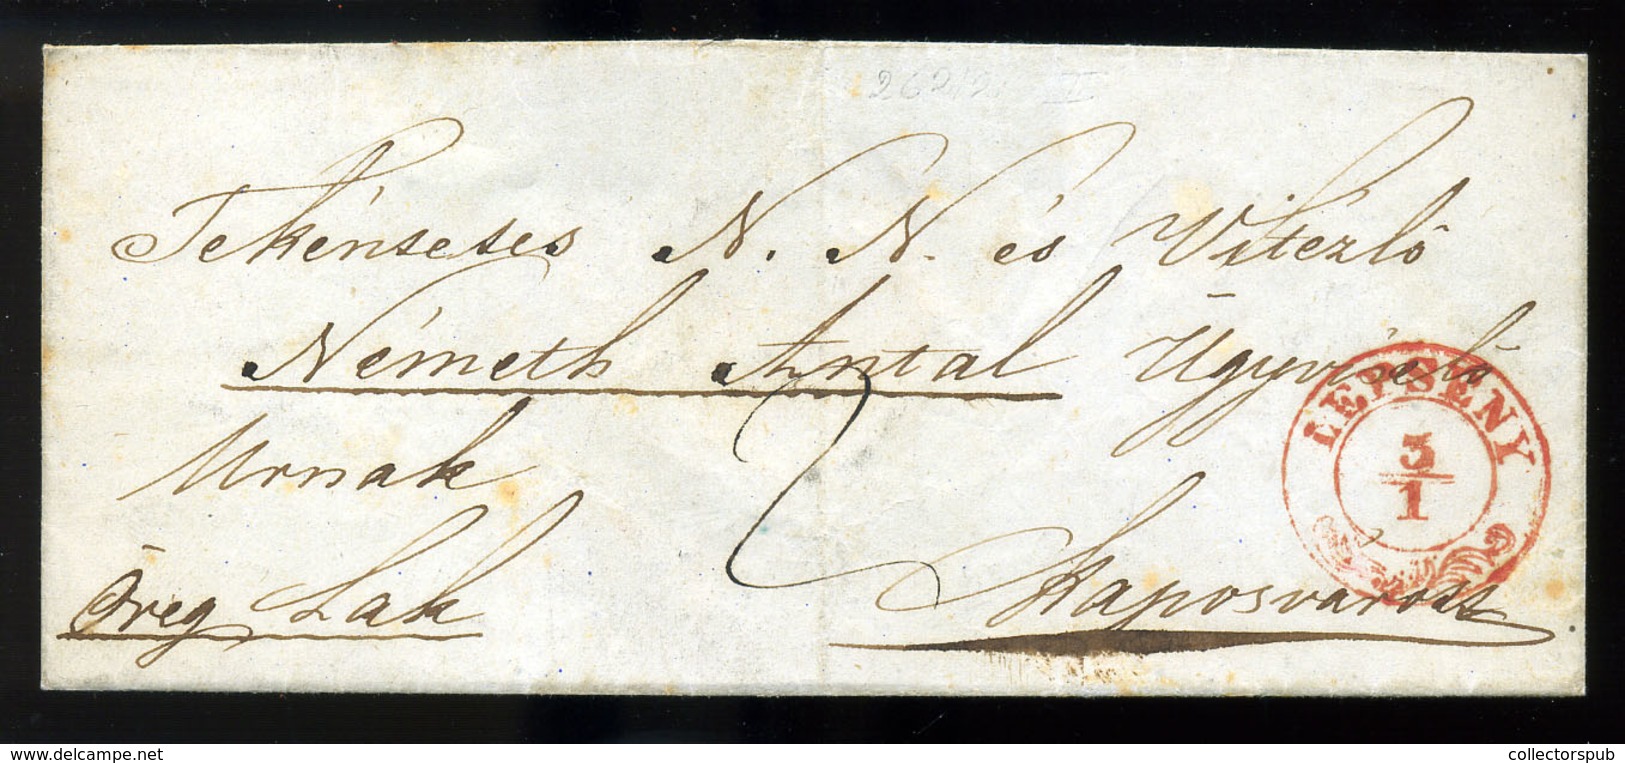 262/2 II
Tekéntetes N. N. és Vitézlő
Németh Antal Ügyviselő
Urnak
Öreg Lak
Kaposvarott
LEPSÉNY
5/1
www.delcampe.net
collectorspub